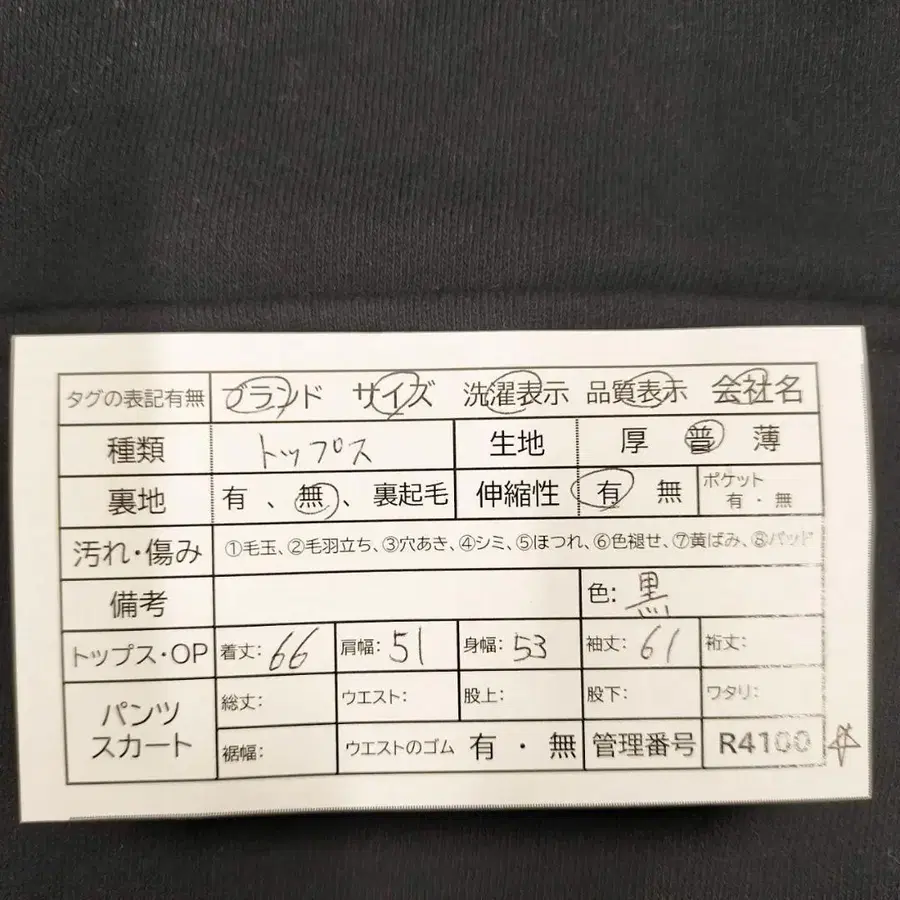 タグの表記有無 ブランド サイズ 洗濯表示 品質表示 会社名
種類 トップス 生地 厚 普 薄
裏地 有 、 無 、 裏起毛 伸縮性 有 無 ポケット 有 ・ 無
汚れ・傷み ①毛玉、②毛羽立ち、③穴あき、④シミ、⑤ほつれ、⑥色褪せ、⑦黄ばみ、⑧パッド
備考 色: 黒
トップス・OP 着丈: 66 肩幅: 51 身幅: 53 袖丈: 61 裄丈:
パンツ スカート 総丈: ウエスト: 股上: 股下: ワタリ:
裾幅: ウエストのゴム 有 ・ 無 管理番号 R4100 ☆